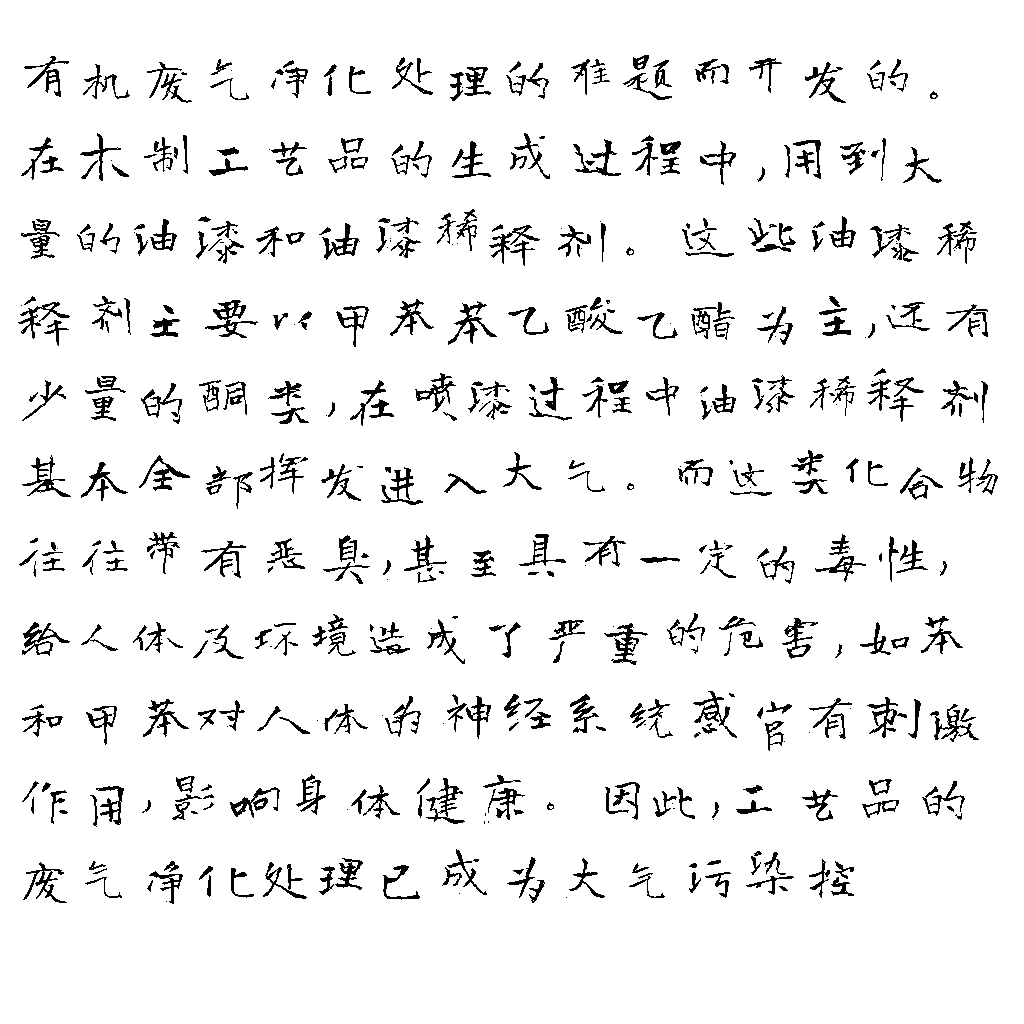 有机废气净化处理的难题而开发的。
在木制工艺品的生成过程中,用到大
量的油漆和油漆稀释剂。这些油漆稀
释剂主要以甲苯苯乙酸乙酯为主,还有
少量的酮类,在喷漆过程中油漆稀释剂
基本全部挥发进入大气。而这类化合物
往往带有恶臭,甚至具有一定的毒性,
给人体及环境造成了严重的危害,如苯
和甲苯对人体的神经系统感官有刺激
作用,影响身体健康。因此,工艺品的
废气净化处理已成为大气污染控